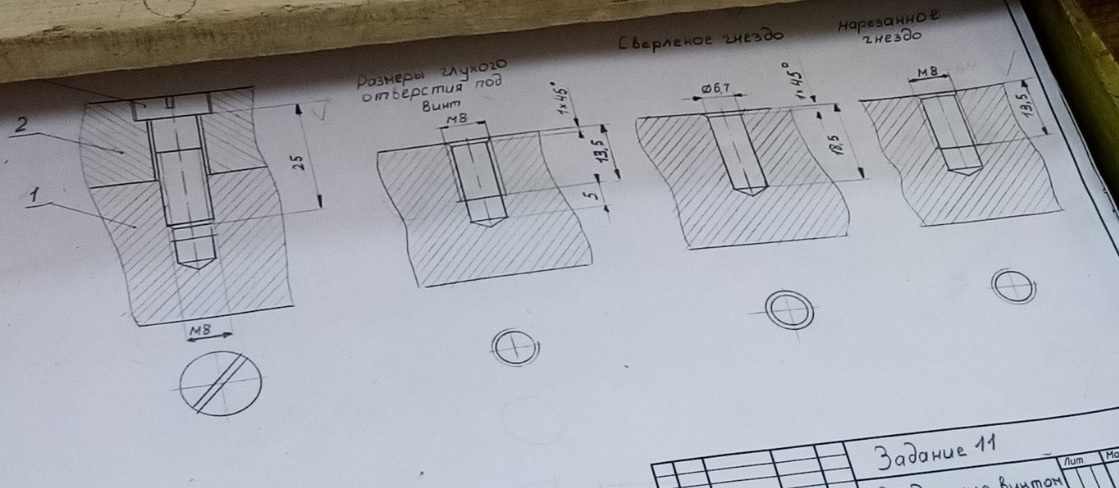 2
1
25
М8
Размеры глухого
отверстия под
Винт
М8
1×45°
13,5
5
Сверленое гнездо
Ø6,7
1×45°
18,5
Нарезанное
гнездо
М8
13,5
Задание 11
Лит.
винтом